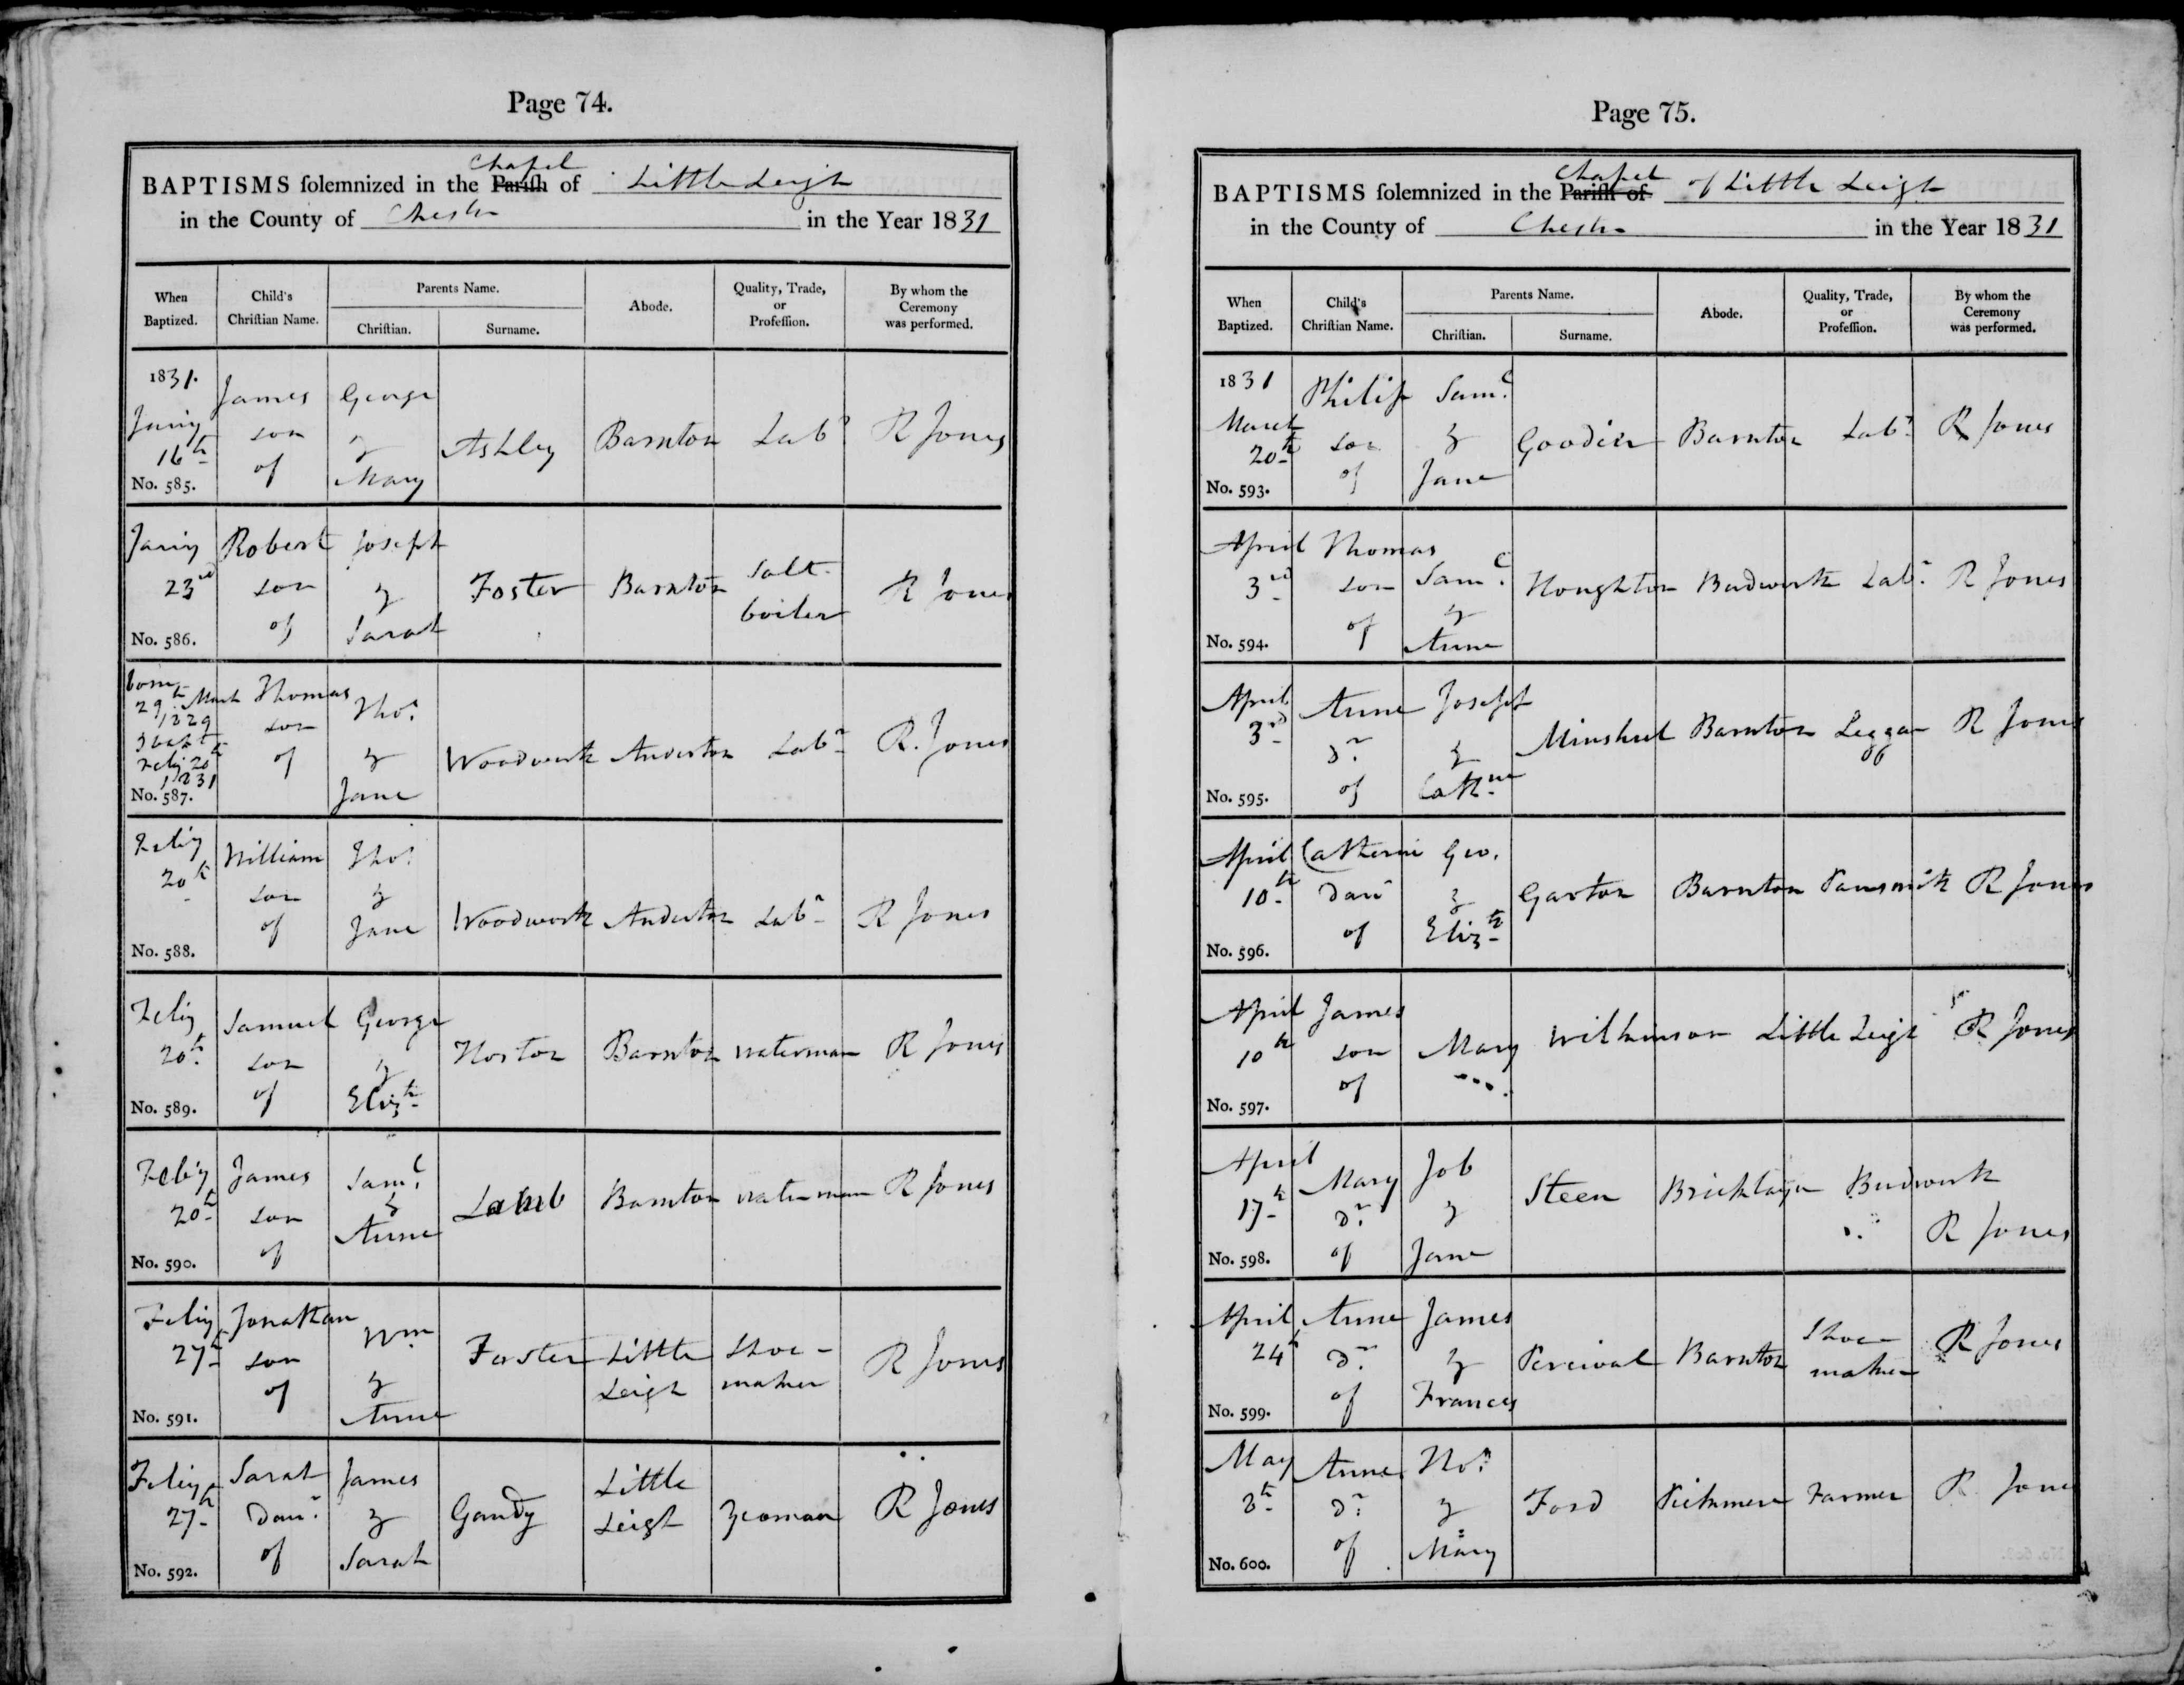 Page 74.
Chapel
BAPTISMS ſolemnized in the Pariſh of Little Leigh
in the County of Chester in the Year 1831
When Baptized. Child's Chriſtian Name. Parents Name. Chriſtian. Surname. Abode. Quality, Trade, or Profeſſion. By whom the Ceremony was performed.
1831. James George
Jany son & Ashley Barnton Labr R Jones
16th of Mary
No. 585.
Jany Robert Joseph
23rd son & Foster Barnton Salt-
of Sarah boiler R Jones
No. 586.
born
29th March Thomas Thos
1829 son
& bapt of & Woodworth Anderton Labr R. Jones
Feby 20th
1831
No. 587. Jane
Feby William Thos
20th son & Woodworth Anderton Labr R Jones
of Jane
No. 588.
Feby Samuel George
20th son & Horton Barnton waterman R Jones
No. 589. of Elizth
Feby James Saml
20th son & Lamb Barnton waterman R Jones
of Anne
No. 590.
Feby Jonathan Wm
27th son & Foster Little Shoe- R Jones
of Anne Leigh maker
No. 591.
Feby Sarah James Little
27th Daur & Gandy Leigh Yeoman R Jones
of Sarah
No. 592.
Page 75.
Chapel
BAPTISMS ſolemnized in the Pariſh of of Little Leigh
in the County of Chester in the Year 1831
When Baptized. Child's Chriſtian Name. Parents Name. Chriſtian. Surname. Abode. Quality, Trade, or Profeſſion. By whom the Ceremony was performed.
1831 Philip Saml
March son & Goodier Barnton Labr R Jones
20th of Jane
No. 593.
April Thomas
3rd son Saml Houghton Budworth Labr R Jones
of &
No. 594. Anne
April Anne Joseph
3rd Dr & Minshul Barnton R Jones
No. 595. of Cathne
April Catherine Geo.
10th Daur & Garton Barnton Pansmith R Jones
of Elizth
No. 596.
April James
10th son Mary Wilkinson Little Leigh R Jones
of
No. 597.
April Mary Job
17th Dr & Steen Bricklayer Budworth
No. 598. of Jane R Jones
April Anne James Shoe-
24th Dr & Percival Barnton maker R Jones
No. 599. of Frances
May Anne Thos
8th Dr & Ford Pickmere Farmer R Jones
No. 600. of Mary